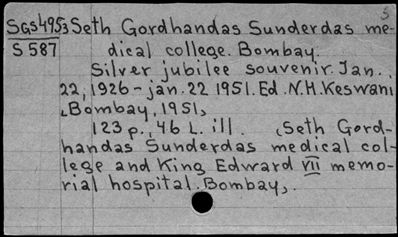 5
SGS4953 Seth Gordhandas Sunderdas me-
S 587 dical college. Bombay.
Silver jubilee souvenir. Jan.,
22, 1926 - jan. 22 1951. Ed. N.H. Keswani
Bombay, 1951,
123 p., 46 L. ill. (Seth Gord-
handas Sunderdas medical col-
lege and King Edward VII memo-
rial hospital. Bombay).